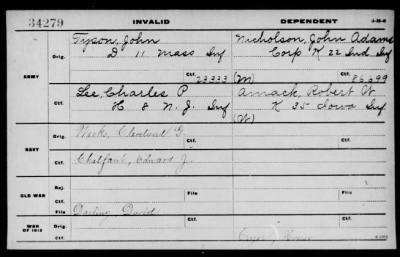 34279
INVALID
DEPENDENT
3-38-6
ARMY
Orig.
Tyson, John
D 11 Mass Inf
Nicholson, John Adams
Corp K 22 Ind Inf
Ctf.
23333
(M)
Ctf.
86,699
Orig.
Lee, Charles P
H 8 N. J. Inf
Amack, Robert W
K 35 Iowa Inf
Ctf.
(W)
NAVY
Orig.
Weeks, Cleveland G.
Ctf.
Orig.
Chalfant, Edward J.
Ctf.
OLD WAR
Rej.
Ctf.
File
Ctf.
File
WAR OF 1812
Orig.
Darling, David
Ctf.
Ctf.